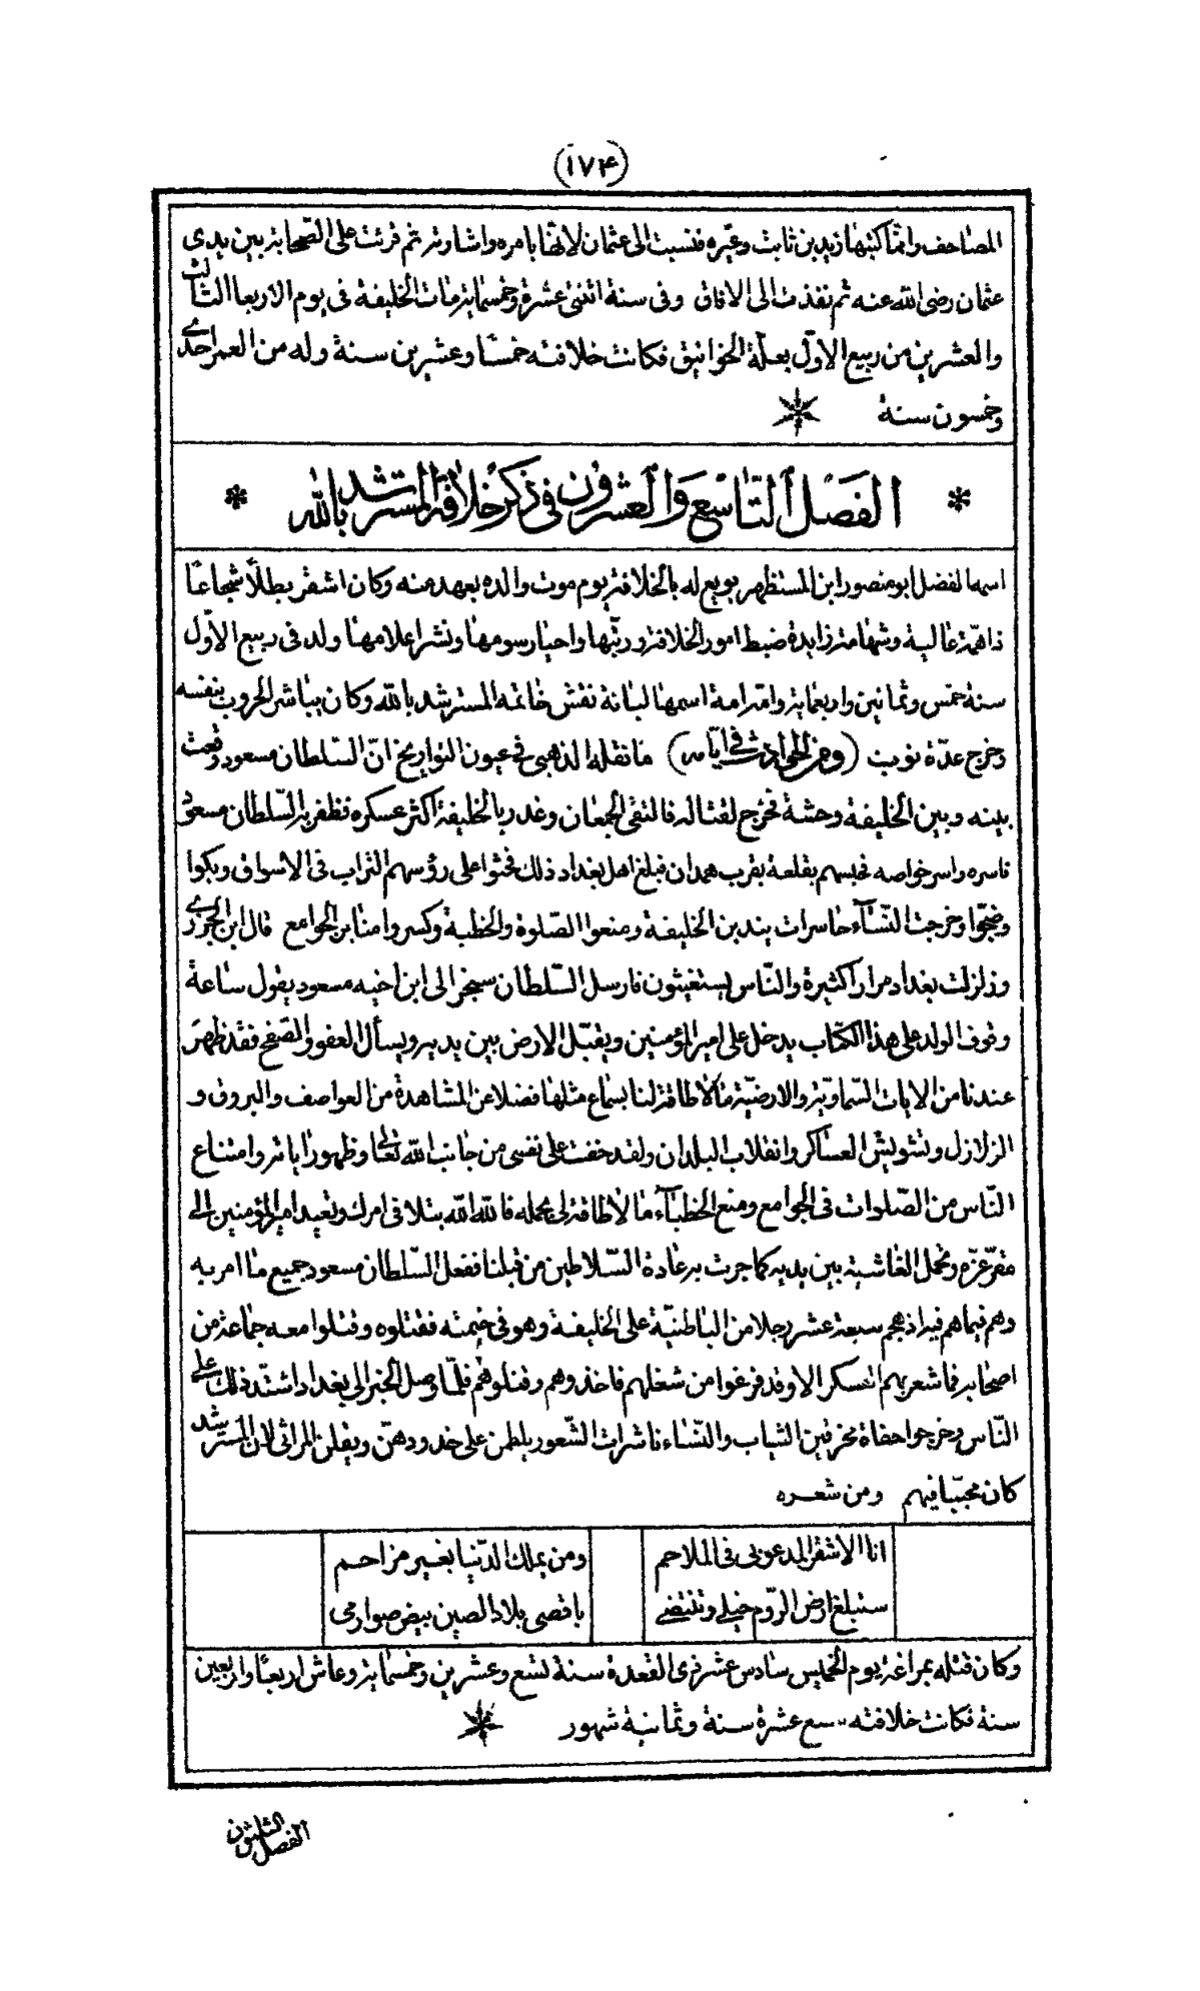 (١٧۴)
المصاحف وانما كتبها زيد بن ثابت وغيره فنسبت الى عثمان لانها بامره واشارته ثم قرئت على الصحابة بين يدى
عثمان رضى الله عنه ثم نفذت الى الافاق وفى سنة اثنتى عشرة وخمسماية مات الخليفة فى يوم الاربعا الثالث
والعشرين من ربيع الاوّل بعلّة الخوانيق فكانت خلافته خمسًا وعشرين سنة وله من العمر احدى
وخمسون سنة
* الفصل التاسع والعشرون فى ذكر خلافة المسترشد بالله *
اسمه الفضل ابو منصور ابن المستظهر بويع له بالخلافة يوم موت والده بعهد منه وكان اشقر بطلًا شجاعًا
ذا همّة عالية وشهامة زايدة ضبط امور الخلافة ورتّبها واحيا رسومها ونشر اعلامها ولد فى ربيع الاوّل
سنة خمس وثمانين واربعماية وامه امة اسمها لبانة نقش خاتمه المسترشد بالله وكان يباشر الحروب بنفسه
وخرج عدّة نوب (ومن الحوادث فى ايّامه) ما نقله الذهبى فى عيون التواريخ انّ السّلطان مسعود وقعت
بينه وبين الخليفة وحشة فخرج لقتاله فالتقى الجمعان وغدر بالخليفة اكثر عسكره فظفر به السّلطان مسعود
فاسره واسر خواصه فحبسهم بقلعة بقرب همدان فبلغ اهل بغداد ذلك فحثوا على رؤسهم التراب فى الاسواق وبكوا
وضجّوا وخرجت النّسآء حاسرات يندبن الخليفة ومنعوا الصّلوة والخطبة وكسروا منابر الجوامع قال ابن الجوزى
وزلزلت بغداد مرارا كثيرة والنّاس يستغيثون فارسل السّلطان سنجر الى ابن اخيه مسعود يقول ساعة
وقوف الولد على هذا الكتاب يدخل على امير المؤمنين ويقبّل الارض بين يديه ويسأل العفو والصّفح فقد ظهر
عندنا من الايات السّماويّة والارضيّة ما لا طاقة لنا بسماع مثلها فضلا عن المشاهدة من العواصف والبروق و
الزلازل وتشويش العساكر وانقلاب البلدان ولقد خفت على نفسى من جانب الله تعالى وظهور اياته وامتناع
النّاس من الصّلوات فى الجوامع ومنع الخطبآء ما لا طاقة لى بحمله فالله الله بتلافى امرك وتعيد امير المؤمنين الى
مقرّ عزّه وتحمل الغاشية بين يديه كما جرت به عادة السّلاطين من قبلنا ففعل السّلطان مسعود جميع ما امر به
وهم فيما هم فيه اذ هجم سبعة عشر رجلا من الباطنيّة على الخليفة وهو فى خيمته فقتلوه وقتلوا معه جماعة من
اصحابه فما شعر بهم العسكر الا وقد فرغوا من شغلهم فاخذوهم وقتلوهم فلمّا وصل الخبر الى بغداد اشتد ذلك على
النّاس وخرجوا حفاة مخرقين الثياب والنّساء ناشرات الشّعور يلطمن على خدودهنّ ويقلن المراثى لان المسترشد
كان محبّبا فيهم ومن شعره
انا الاشقر المدعو بى فى الملاحم ومن يملك الدّنيا بغير مزاحم
ستبلغ ارض الرّوم خيلى وتنتضى باقصى بلاد الصين بيض صوارمى
وكان قتله بمراغة يوم الخميس سادس عشر ذى القعدة سنة تسع وعشرين وخمسماية وعاش اربعًا واربعين
سنة فكانت خلافته سبع عشرة سنة وثمانية شهور
الفصل الثلثون